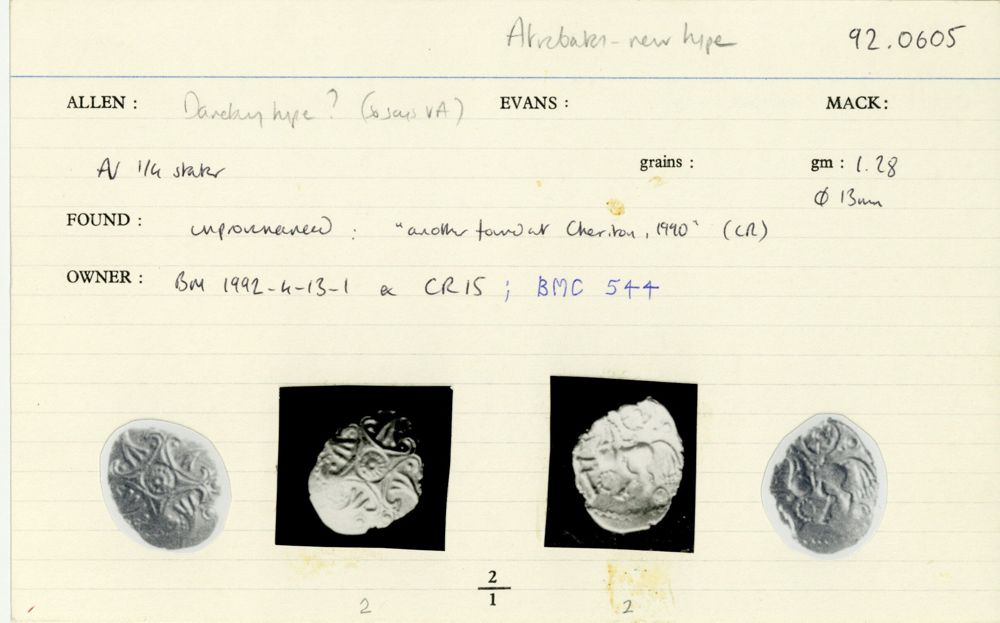 Atrebates - new type 92.0605
ALLEN : Danebury type ? (so says VA) EVANS : MACK:
AV 1/4 stater grains : gm : 1.28
Ø 13mm
FOUND : unprovenanced : "another found at Cheriton, 1990" (CR)
OWNER : BM 1992-4-13-1 ex CR15 ; BMC 544
2
1
2 2